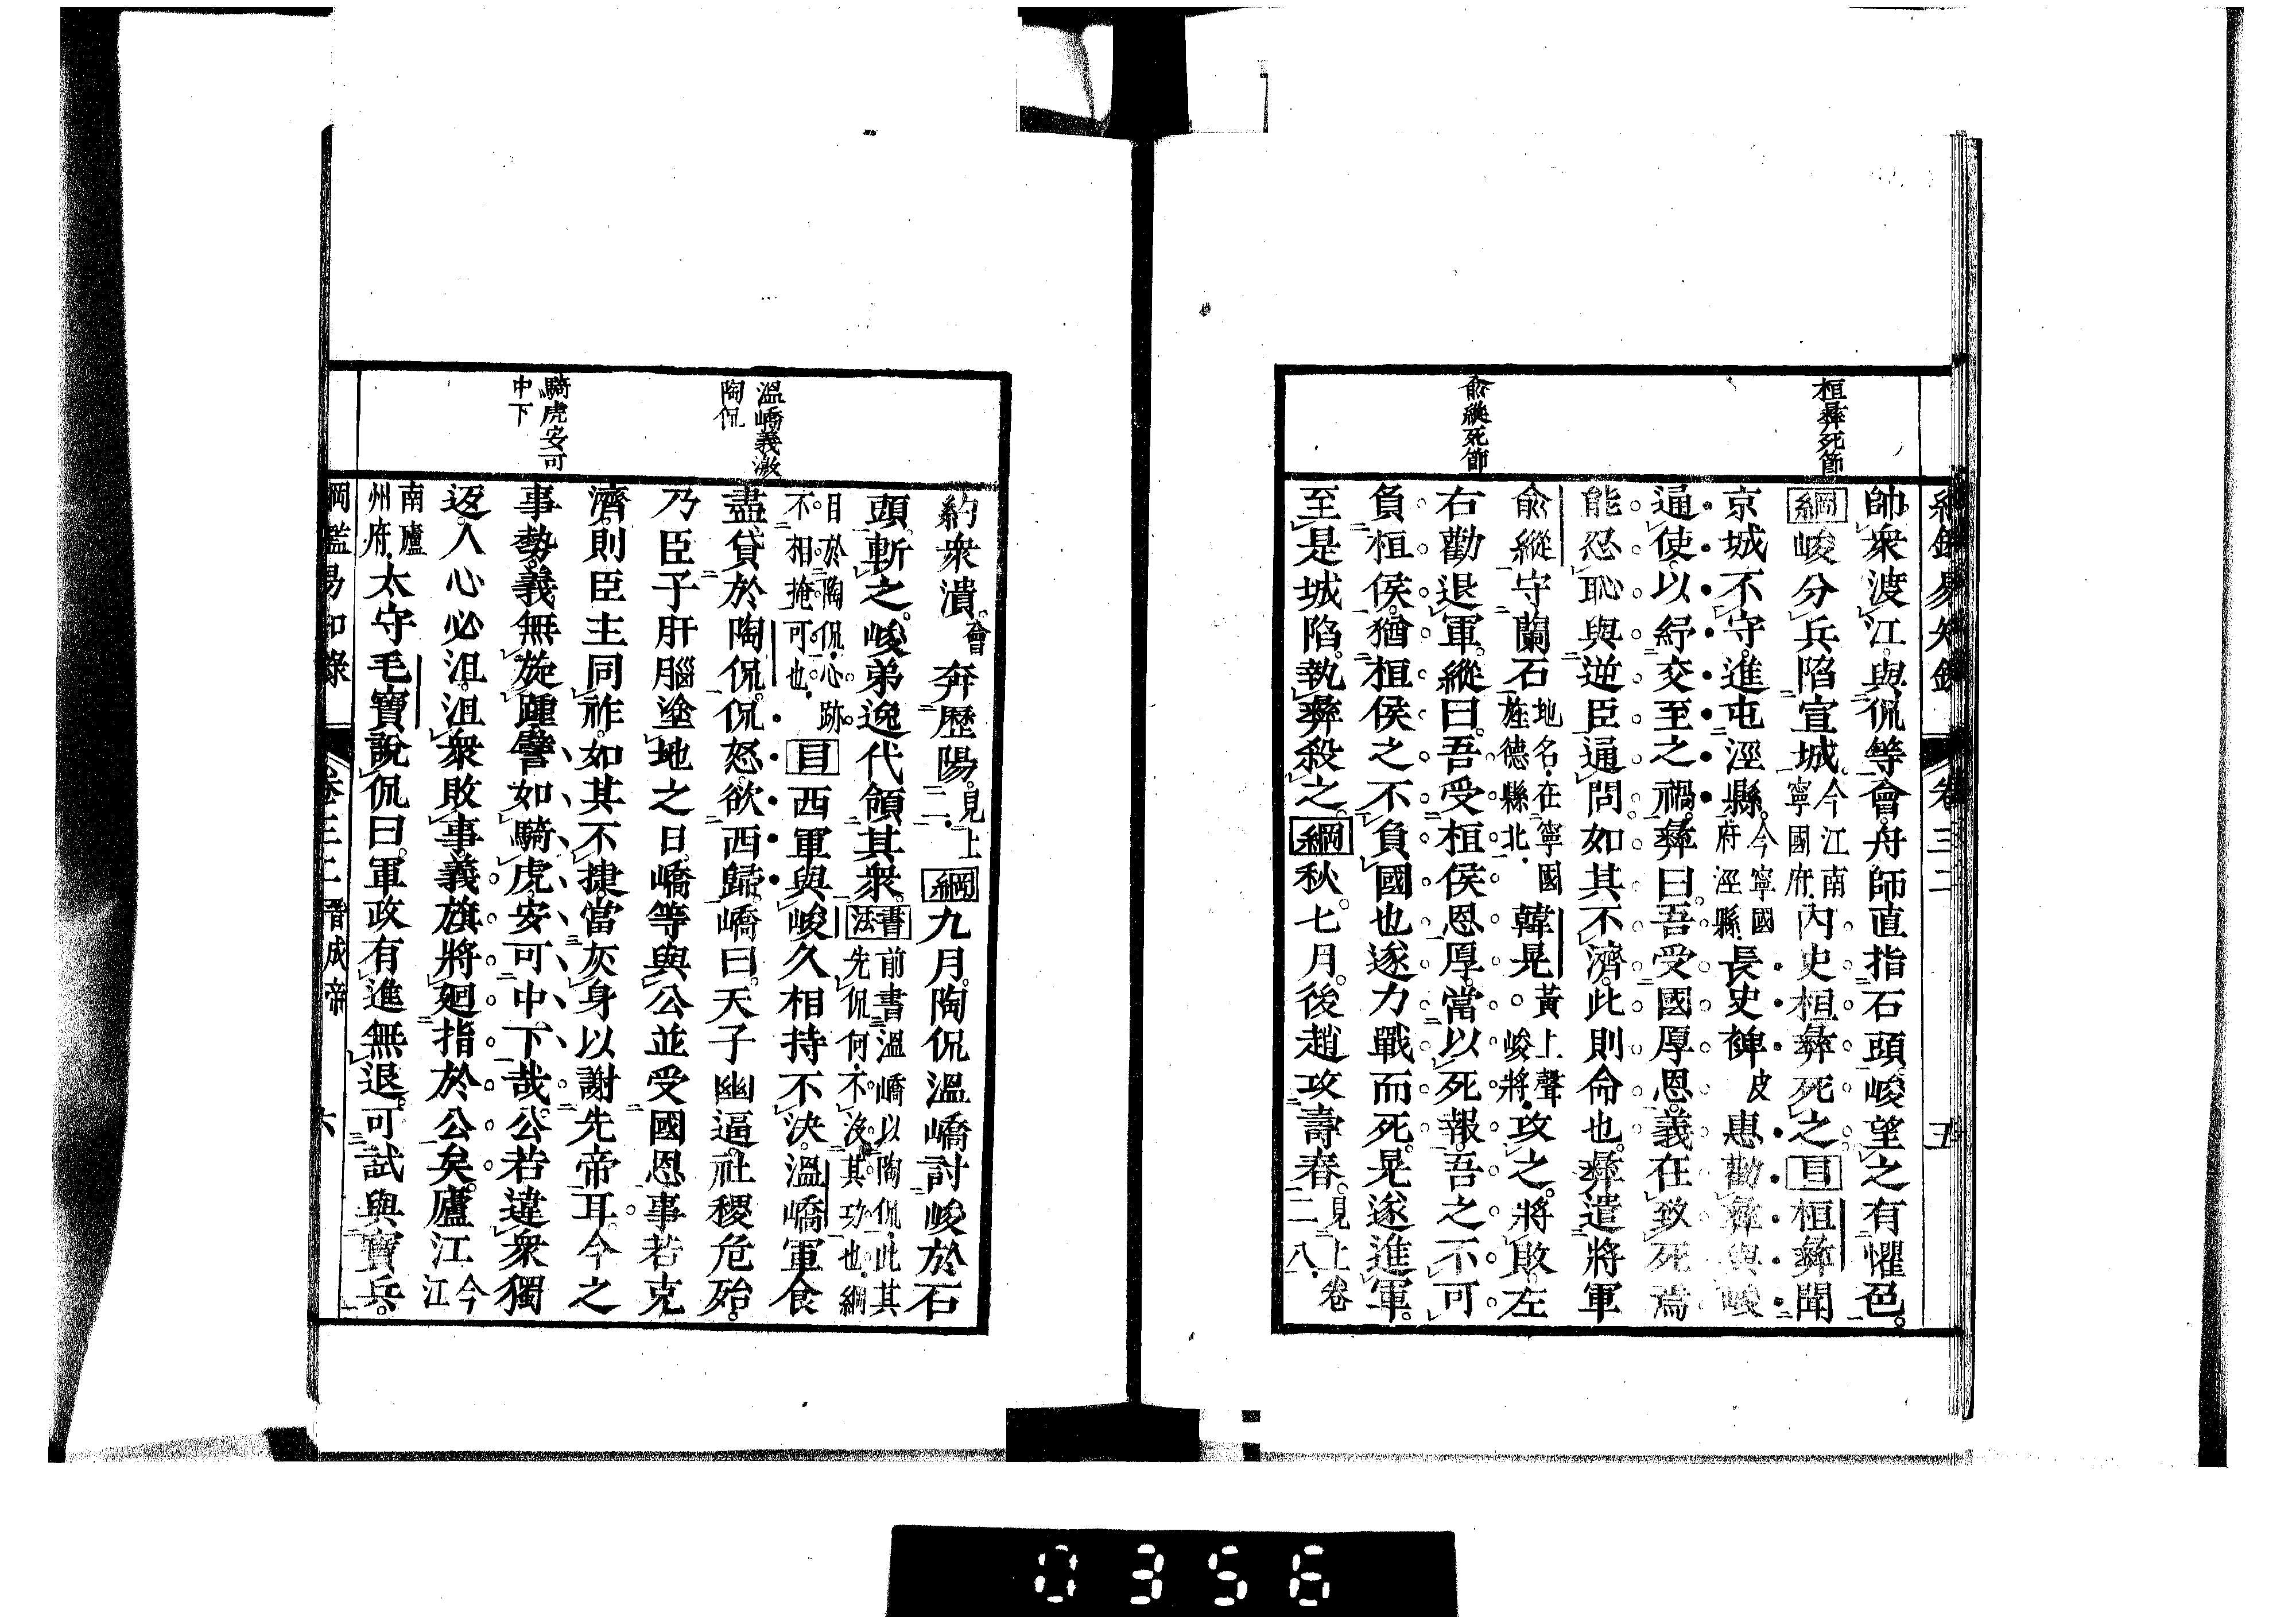 綱鑑易知錄 卷三二 五
桓彝死節
俞縱死節
帥衆渡江與侃等會舟師直指石頭峻望之有懼色
綱峻分兵陷宣城今江南寧國府内史桓彝死之目桓彝聞
京城不守進屯涇縣今寧國府涇縣長史裨皮惠勸彝與峻
通使以紓交至之禍彝曰吾受國厚恩義在致死焉
能忍恥與逆臣通問如其不濟此則命也彝遣將軍
俞縱守蘭石地名在寧國旌德縣北韓晃黃上聲峻將攻之將敗左
右勸退軍縱曰吾受桓侯恩厚當以死報吾之不可
負桓侯猶桓侯之不負國也遂力戰而死晃遂進軍
至是城陷執彝殺之綱秋七月後趙攻壽春見上卷二八
約衆潰會奔歷陽見上二綱九月陶侃溫嶠討峻於石
頭斬之峻弟逸代領其衆書法前書溫嶠以陶侃此其先侃何不沒其功也綱
目於陶侃心跡不相掩可也目西軍與峻久相持不決溫嶠軍食
盡貸於陶侃侃怒欲西歸嶠曰天子幽逼社稷危殆
乃臣子肝腦塗地之日嶠等與公並受國恩事若克
濟則臣主同祚如其不捷當灰身以謝先帝耳今之
事勢義無旋踵譬如騎虎安可中下哉公若違衆獨
返人心必沮沮衆敗事義旗將廻指於公矣廬江今江
南廬州府太守毛寶說侃曰軍政有進無退可試與寶兵
溫嶠義激陶侃
騎虎安可中下
綱鑑易知錄 卷三二 晉成帝 六
0356